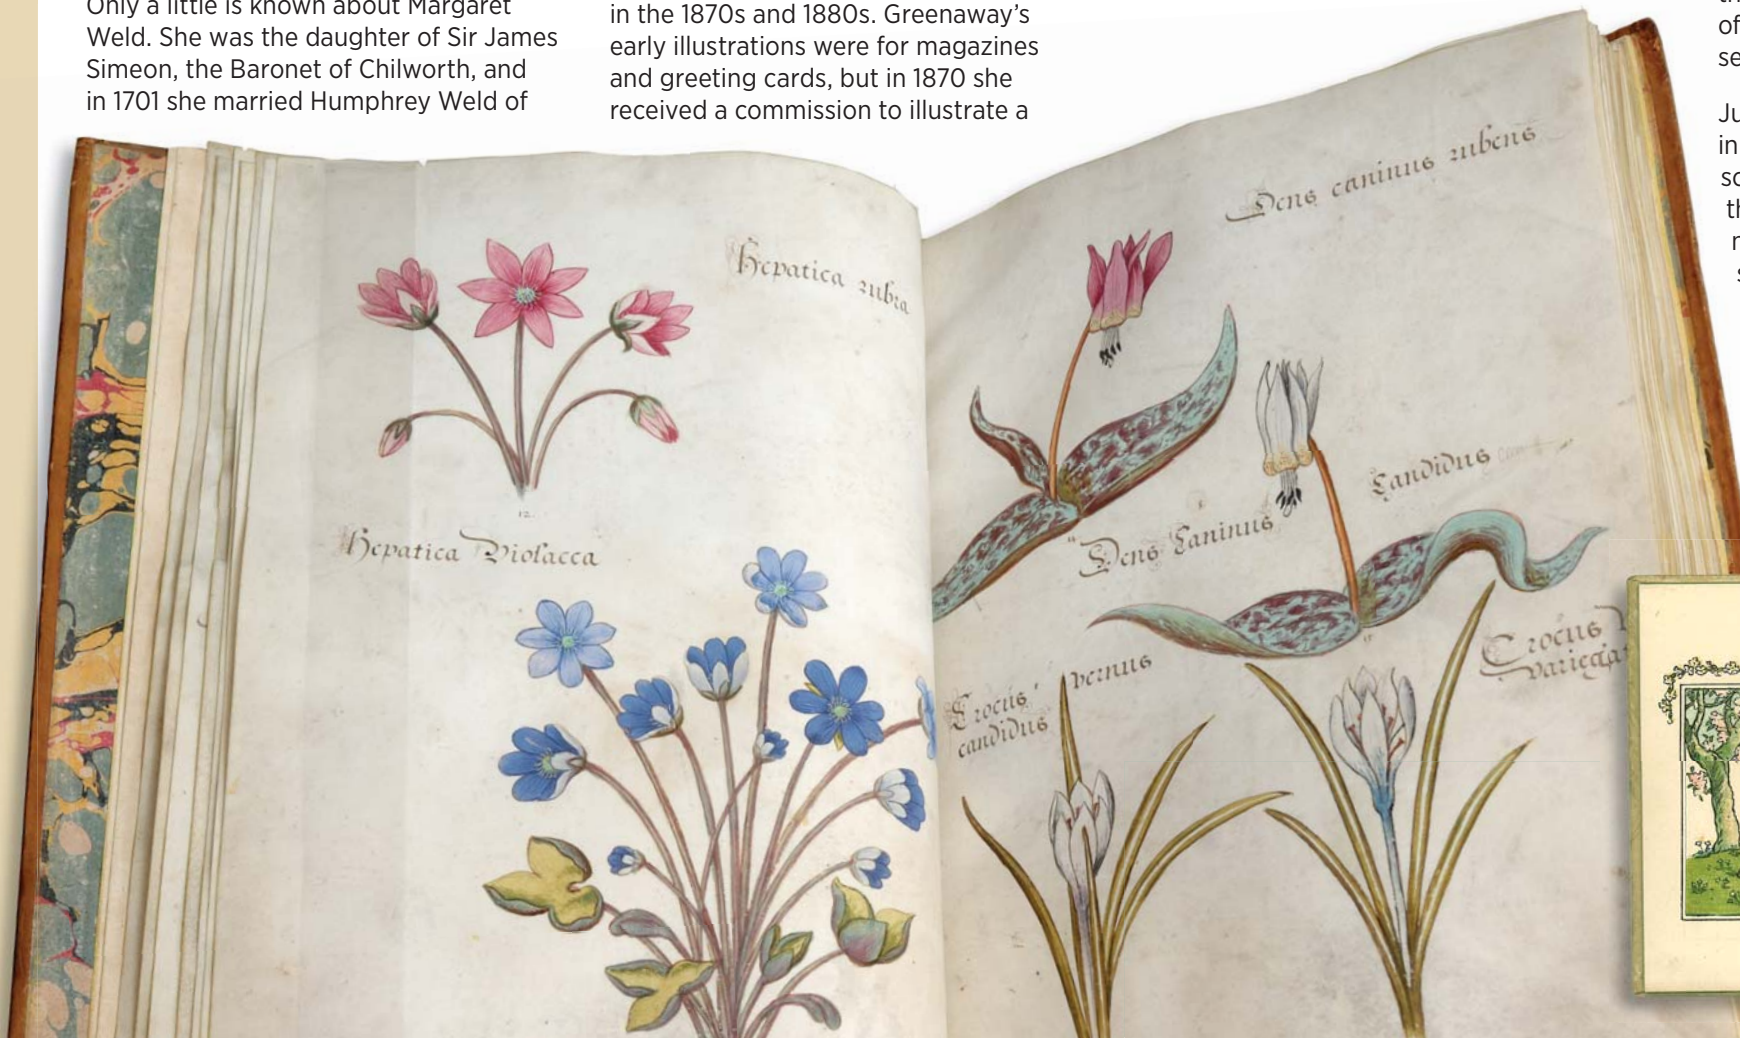 Only a little is known about Margaret
Weld. She was the daughter of Sir James
Simeon, the Baronet of Chilworth, and
in 1701 she married Humphrey Weld of
in the 1870s and 1880s. Greenaway’s
early illustrations were for magazines
and greeting cards, but in 1870 she
received a commission to illustrate a
of
Ju
in
Hepatica rubra
12
Hepatica Violacea
Dens caninus rubens
Dens Caninus
Candidus
Crocus vernus
candidus
Crocus
variegat